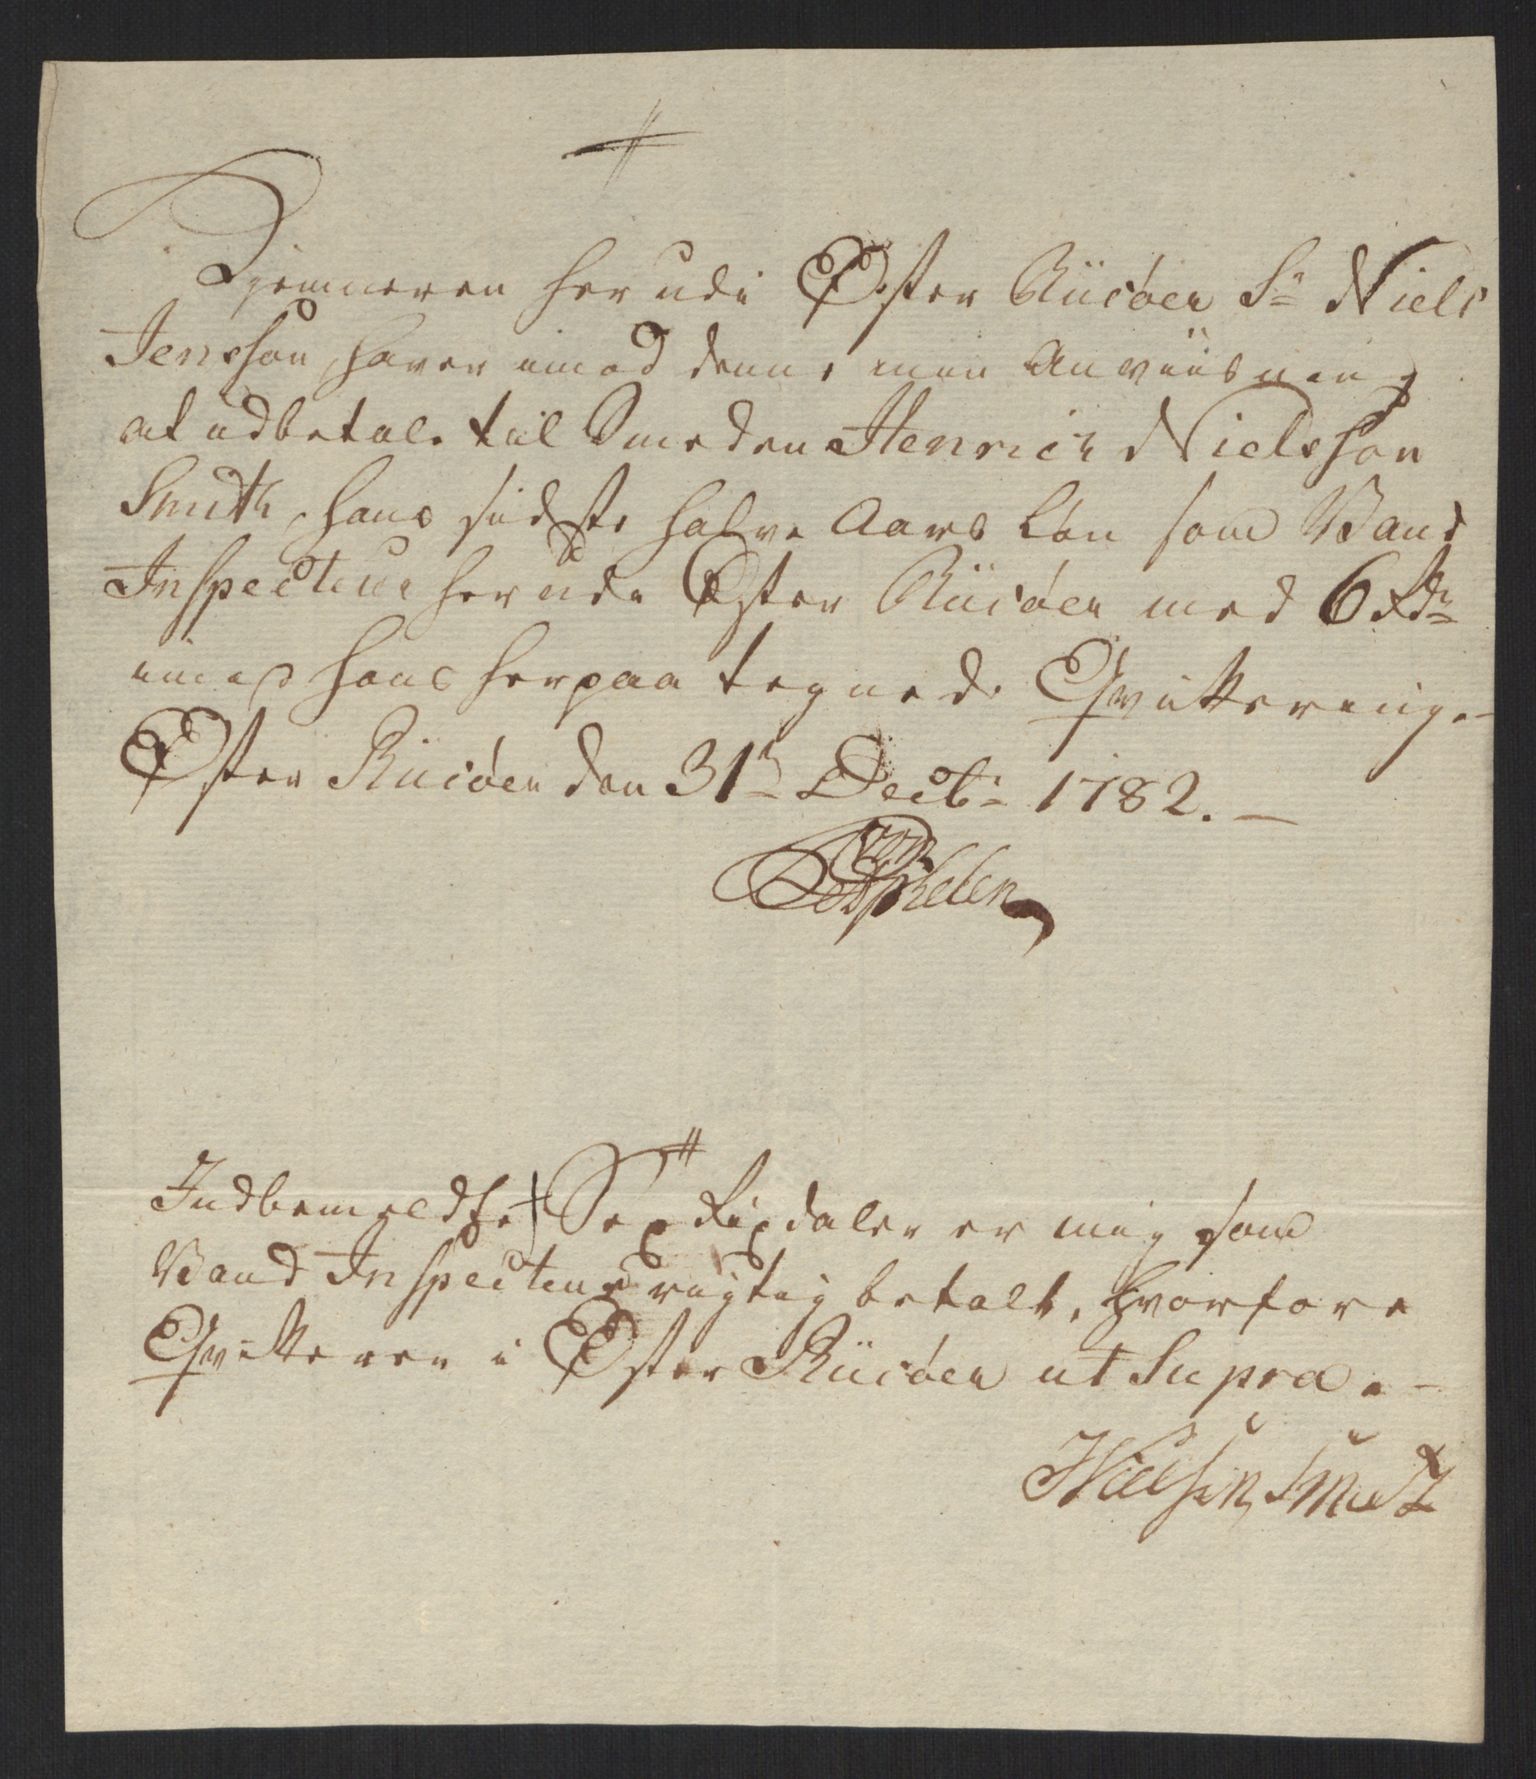 Kjemneren her udi Øster Riisöer Sr. Niels
Jensson, haver imod denne min Anviisning
at udbetale til Smeden Henrich Nielsson
Smith, hans sidste halve Aars Løn som Vand
Inspecteur her udi Øster Riisöer med 6 Rdr
imod hans herpaa tegnede Qvittering.-
Øster Riisöer den 31te Decbr. 1782. —
von
Indbemeldte Sex Rixdaler er mig som
Vand Inspecteur rigtig betalt, hvorfore
Qvitterer i Øster Riisöer ut Supra. -
HNielsen Smit